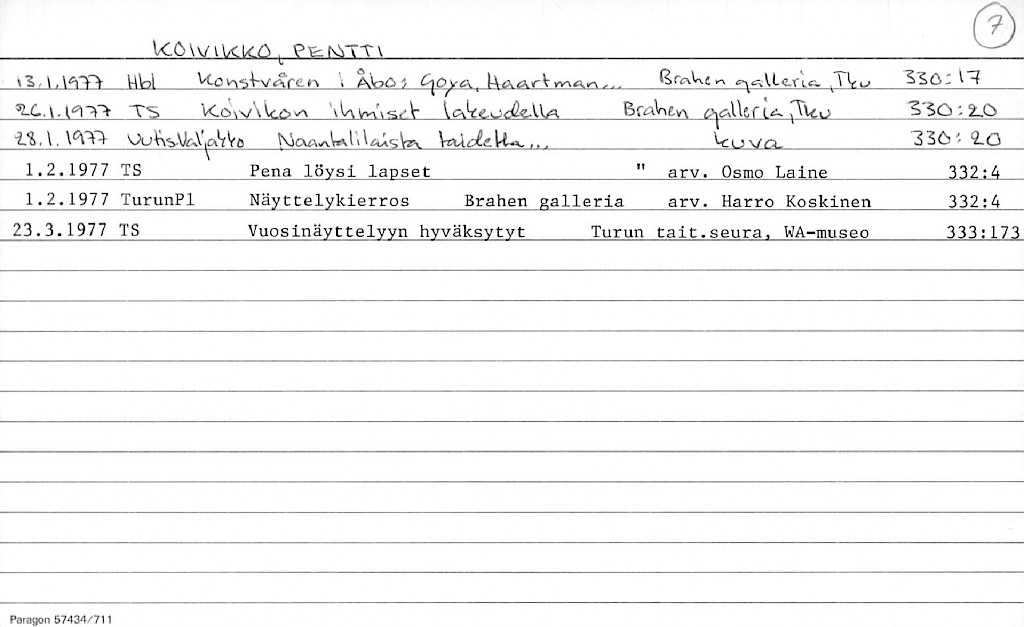 7
KOIVIKKO, PENTTI
13.1.1977 Hbl Konstvåren i Åbo: Goya, Haartman... Brahen galleria, Tku 330:17
26.1.1977 TS Koivikon ihmiset lakeudella Brahen galleria, Tku 330:20
28.1.1977 Uutisvaljakko Naantalilaista taidetta... kuva 330:20
1.2.1977 TS Pena löysi lapset " arv. Osmo Laine 332:4
1.2.1977 TurunPl Näyttelykierros Brahen galleria arv. Harro Koskinen 332:4
23.3.1977 TS Vuosinäyttelyyn hyväksytyt Turun tait.seura, WA-museo 333:173
Paragon 57434/711